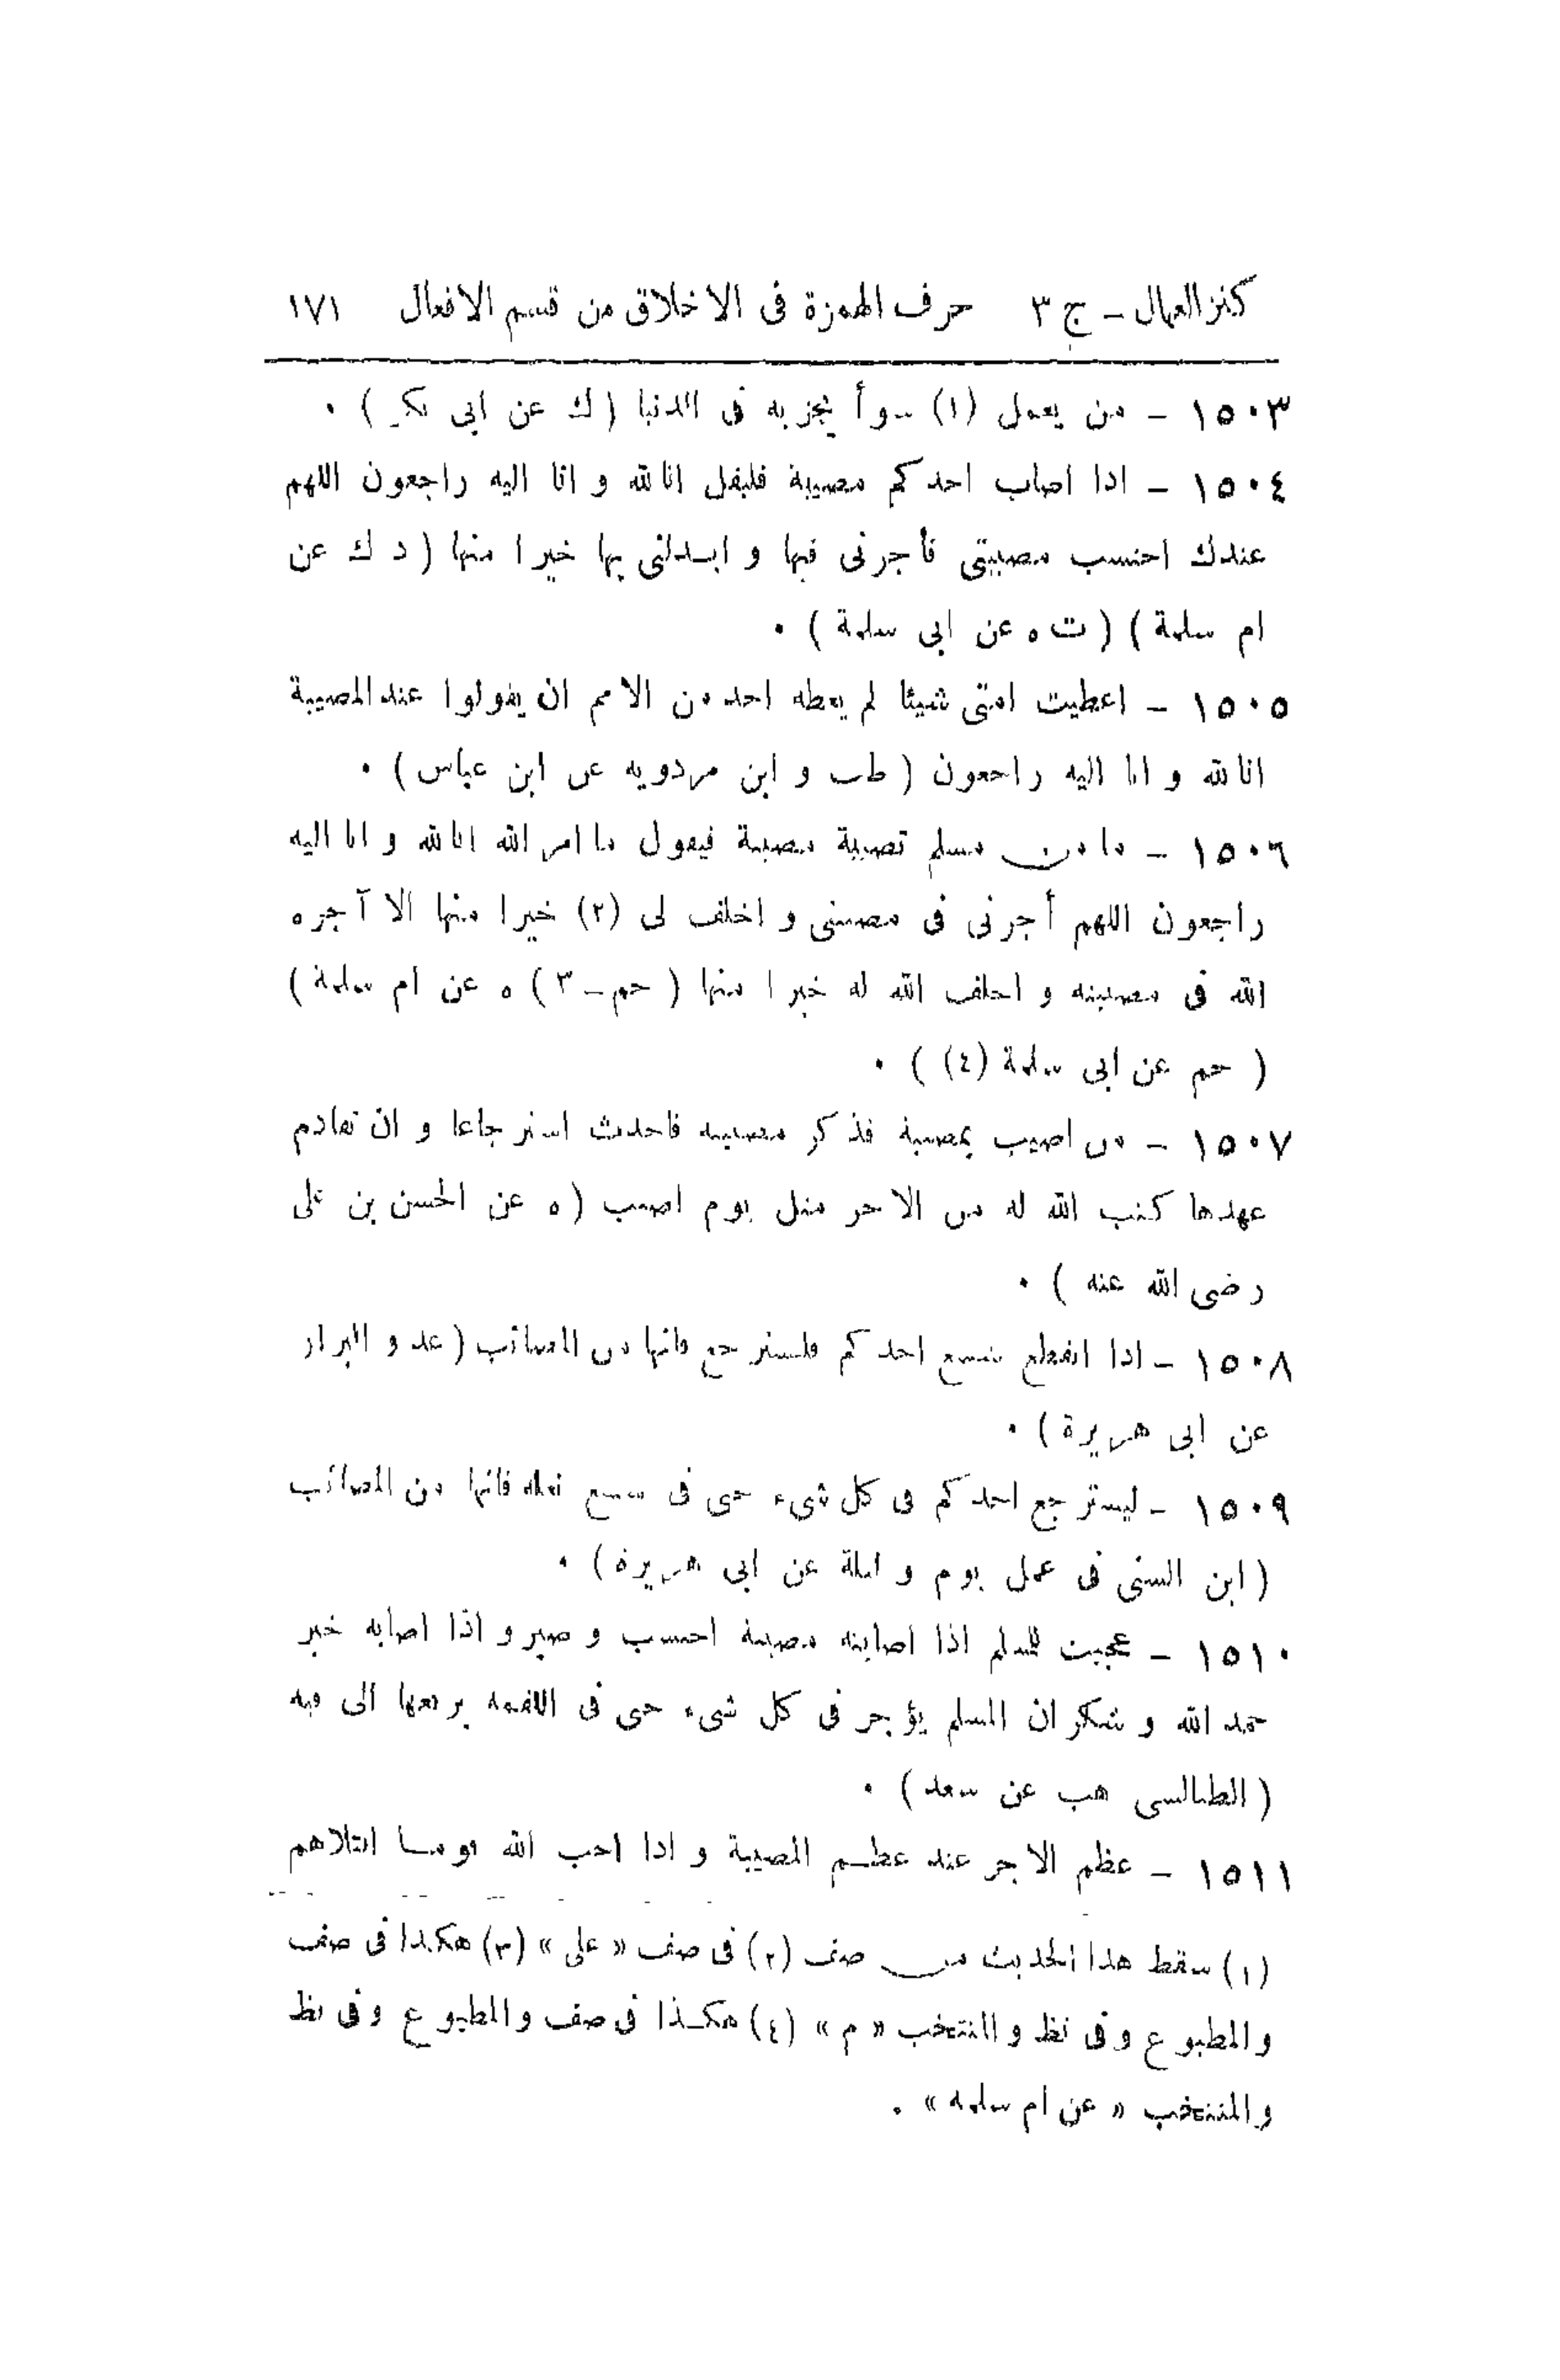 كنز العمال ـ ج ٣ حرف الهمزة فى الاخلاق من قسم الافعال ١٧١
١٥٠٣ ـ من يعمل (١) سوأ يجز به فى الدنيا (ك عن ابى بكر) ٠
١٥٠٤ ـ اذا اصاب احدكم مصيبة فليقل انا لله و انا اليه راجعون اللهم
عندك احتسب مصيبتى فأجرنى فيها و ابـدلنى بها خيرا منها (د ك عن
ام سلمة) (ت ه عن ابى سلمة) ٠
١٥٠٥ ـ اعطيت امتى شيئا لم يعطه احد من الامم ان يقولوا عند المصيبة
انا لله و انا اليه راجعون (طب و ابن مردويه عن ابن عباس) ٠
١٥٠٦ ـ ما من مسلم تصيبة مصيبة فيقول ما امر الله انا لله و انا اليه
راجعون اللهم أجرنى فى مصيبتى و اخلف لى (٢) خيرا منها الا آجره
الله فى مصيبته و اخلف الله له خيرا منها (حم ـ ٣) ه عن ام سلمة)
(حم عن ابى سلمة (٤)) ٠
١٥٠٧ ـ من اصيب بمصيبة فذكر مصيبته فاحدث استرجاعا و ان تقادم
عهدها كتب الله له من الاجر مثل يوم اصيب (ه عن الحسن بن على
رضى الله عنه) ٠
١٥٠٨ ـ اذا انقطع شسع احدكم فليسترجع فانها من المصائب (عد و البزار
عن ابى هريرة) ٠
١٥٠٩ ـ ليسترجع احدكم فى كل شىء حتى فى شسع نعله فانها من المصائب
(ابن السنى فى عمل يوم و ليلة عن ابى هريرة) ٠
١٥١٠ ـ عجبت للمسلم اذا اصابته مصيبة احتسب و صبر و اذا اصابه خير
حمد الله و شكر ان المسلم يؤجر فى كل شىء حتى فى اللقمة يرفعها الى فيه
(الطيالسى هب عن سعد) ٠
١٥١١ ـ عظم الاجر عند عظـم المصيبة و اذا احب الله قومـا ابتلاهم
(١) سقط هذا الحديث من صف (٢) فى صف « على » (٣) هكذا فى صف
والمطبوع وفى نظ والمنتخب « م » (٤) هكـذا فى صف والمطبوع وفى نظ
والمنتخب « عن ام سلمه » .